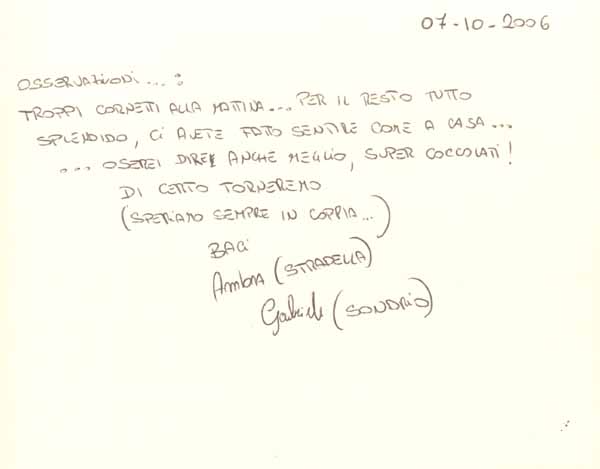 07-10-2006
OSSERVAZIONI...:
TROPPI CORNETTI ALLA MATTINA... PER IL RESTO TUTTO
SPLENDIDO, CI AVETE FATTO SENTIRE COME A CASA...
... OSEREI DIREI ANCHE MEGLIO, SUPER COCCOLATI!
DI CERTO TORNEREMO
(SPERIAMO SEMPRE IN COPPIA...)
BACI
Ambra (STRADELLA)
Gabriele (SONDRIO)